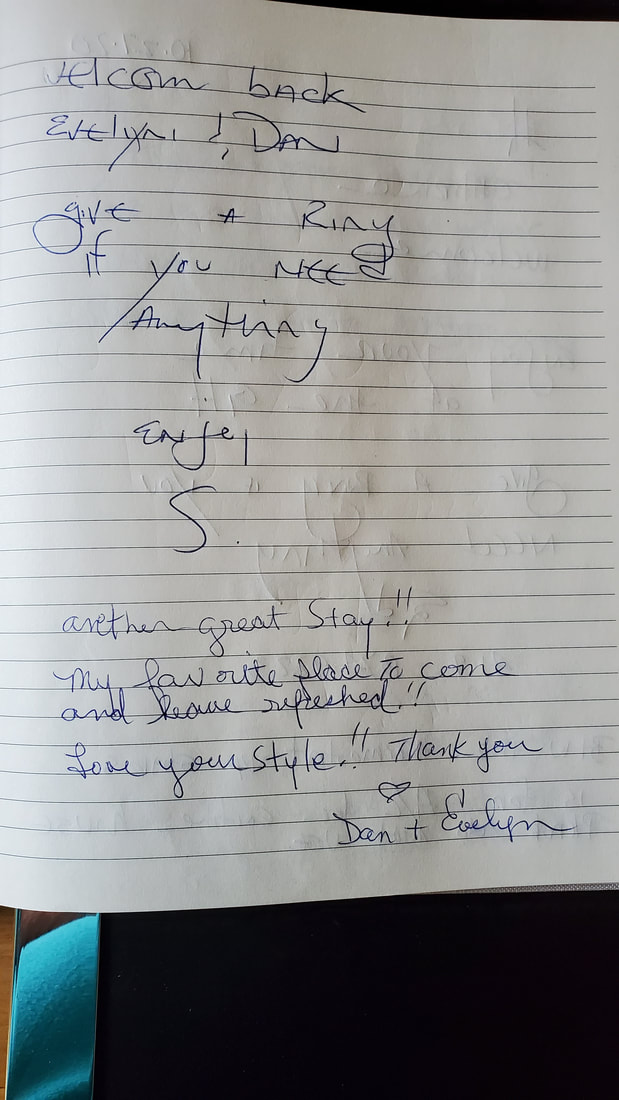 welcom back
Evelyn & Dan
give A Ring
if you NEED
Anything
Enjel
S.
another great Stay!!
My favorite place To come
and leave refreshed!!
Love your Style!! Thank you
♡
Dan + Evelyn